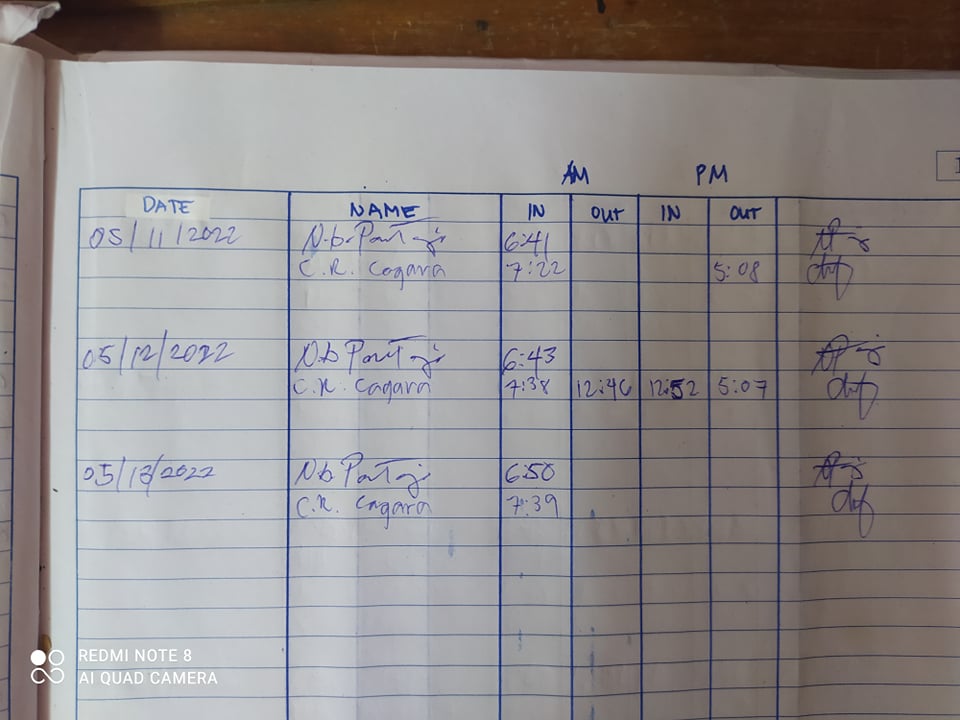 AM PM
DATE NAME IN OUT IN OUT
05/11/2022 N.b. 6:41
C.R. Cagara 7:22 5:08
05/12/2022 N.b 6:43
C.R. Cagara 7:38 12:46 12:52 5:07
05/13/2022 N.b 6:50
C.R. Cagara 7:39
REDMI NOTE 8
AI QUAD CAMERA